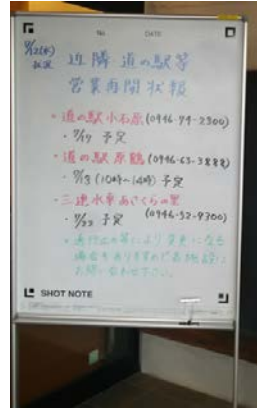 No. DATE
7/12(水)
近隣 道の駅等
営業再開状報
・道の駅 小石原 (0946-74-2300)
・7/17 予定
・道の駅 原鶴 (0946-63-3888)
・7/13 (10時〜14時) 予定
・三連水車 あさくらの里
・7/22 予定 (0946-52-9300)
・通行止め等により 変更になる
場合もありますので各施設に
お問い合わせ下さい。
SHOT NOTE